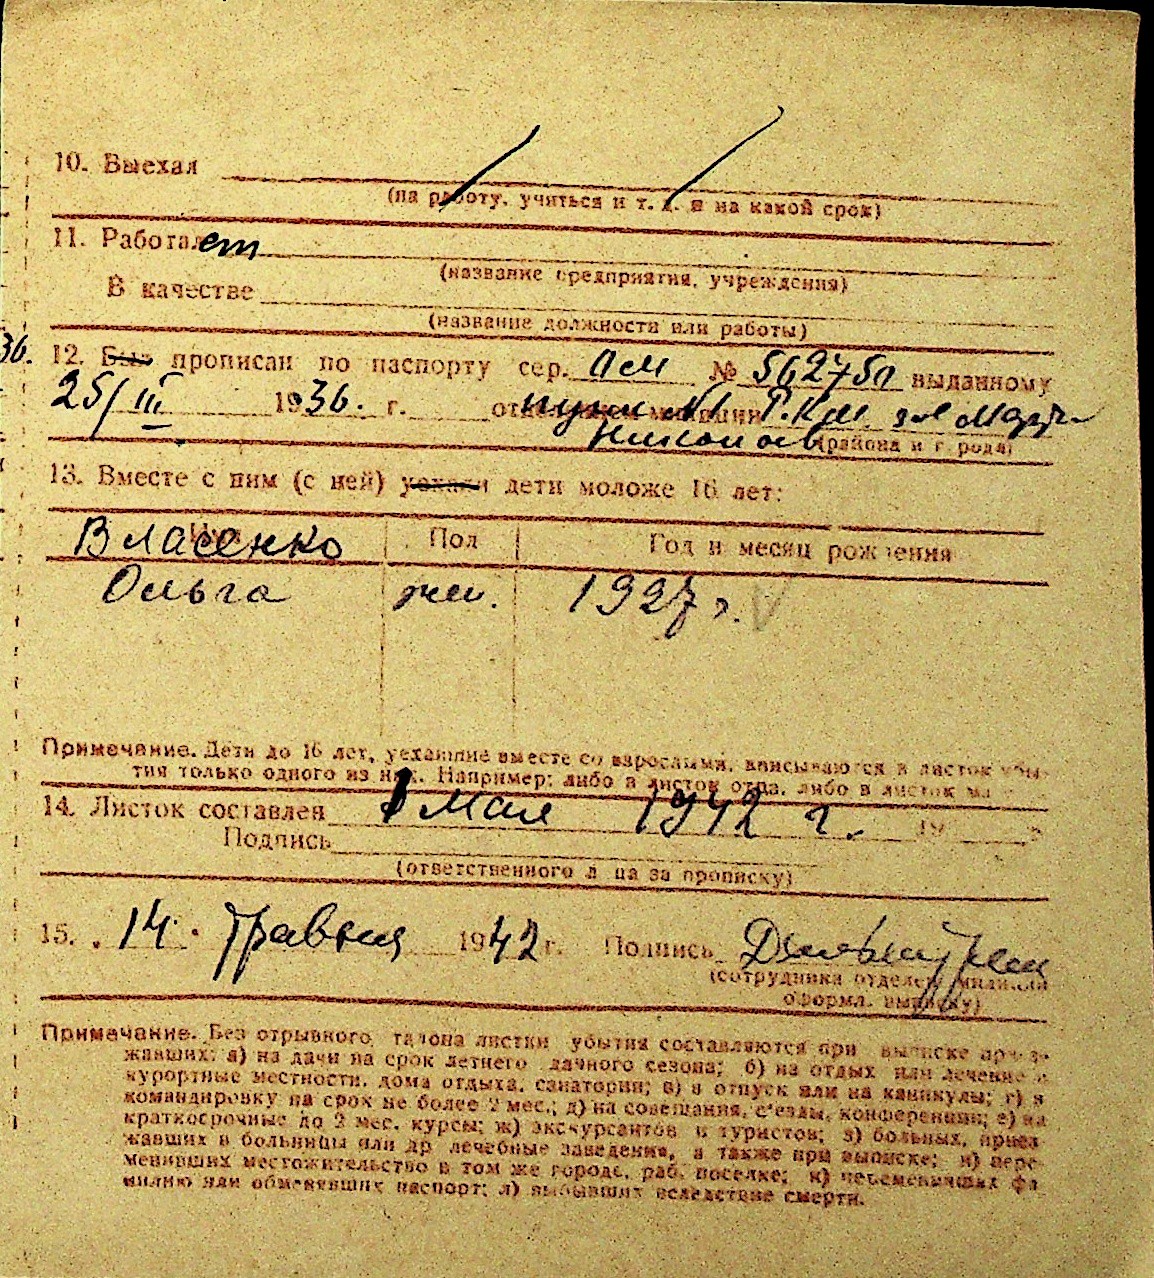 10. Выехал
(на работу, учиться и т. д. и на какой срок)
11. Работает
(название предприятия, учреждения)
В качестве
(название должности или работы)
36. 12. Был прописан по паспорту сер. № 562750 выданному
25/III 1936. г. отделением милиции
(района и города)
13. Вместе с ним (с ней) уехали дети моложе 16 лет:
Имя Пол Год и месяц рождения
Власенко
Ольга жен. 1927 г.
Примечание. Дети до 16 лет, уехавшие вместе со взрослыми, вписываются в листок убы-
тия только одного из них. Например: либо в листок отца, либо в листок ма
14. Листок составлен 1 мая 1942 г. 19
Подпись
(ответственного лица за прописку)
15. 14. травня 1942 г. Подпись
(сотрудника отделен. милиции
оформл. выписку)
Примечание. Без отрывного талона листки убытия составляются при выписке приез-
жавших: а) на дачи на срок летнего дачного сезона; б) на отдых или лечение в
курортные местности, дома отдыха, санатории; в) в отпуск или на каникулы; г) в
командировку на срок не более 2 мес.; д) на совещания, с'езды, конференции; е) на
краткосрочные до 2 мес. курсы; ж) экскурсантов и туристов; з) больных, приез-
жавших в больницы или др. лечебные заведения, а также при выписке; и) пере-
менивших местожительство в том же городе, раб. поселке; к) переменивших фа-
милию или обменявших паспорт; л) выбывших вследствие смерти.